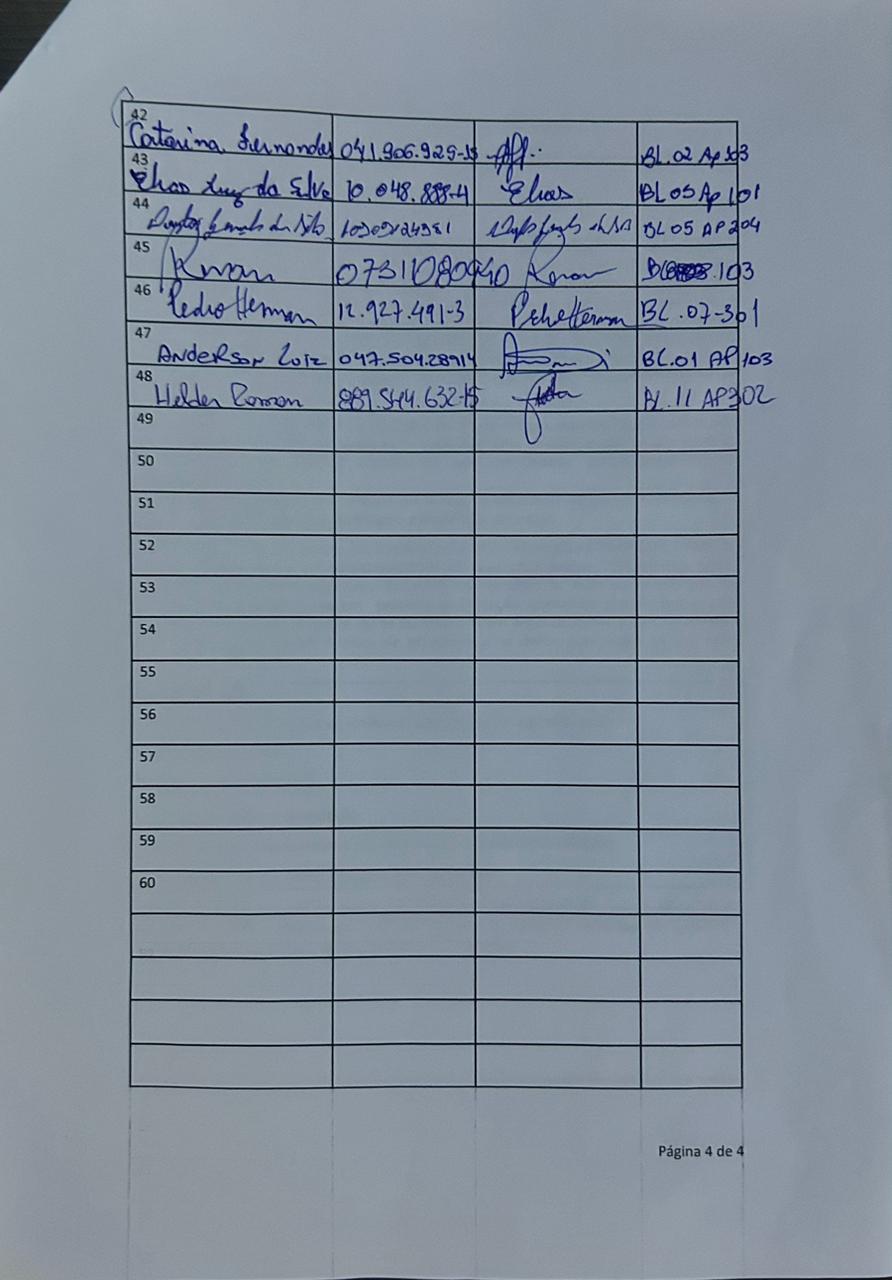 42
Catarina Fernandes 041.906.929-15 BL.02 Ap 303
43
Elias Luiz da Silva 10.048.888-4 Elias BL 05 Ap 101
44
da Silva 10909124981 BL 05 AP 204
45
Renan 07311080940 Renan .103
46
Pedro Herman 12.927.491-3 Pedro Herman BL.07-301
47
Anderson Luiz 047.504.289-14 BL.01 AP 103
48
Helder Roman 889.544.632-15 BL.11 AP302
49
50
51
52
53
54
55
56
57
58
59
60
Página 4 de 4